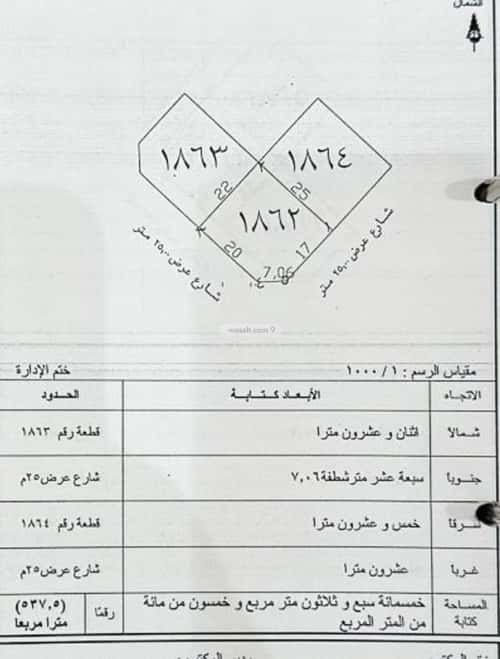 الشمال
١٨٦٣
١٨٦٤
22
25
١٨٦٢
20
17
7,06
شارع عرض ٢٥,٠٠ متر
شارع عرض ٢٥,٠٠ متر
wasalt.com
مقياس الرسم : ١ / ١٠٠٠
ختم الإدارة
الاتجاه الأبعاد كتابة الحدود
شمالاً اثنان و عشرون مترا قطعة رقم ١٨٦٣
جنوباً سبعة عشر مترشطفة٧,٠٦ شارع عرض٢٥م
شرقاً خمس و عشرون مترا قطعة رقم ١٨٦٤
غرباً عشرون مترا شارع عرض٢٥م
المساحة كتابة خمسمائة سبع و ثلاثون متر مربع و خمسون من مائة من المتر المربع رقمًا (٥٣٧,٥) مترا مربعا